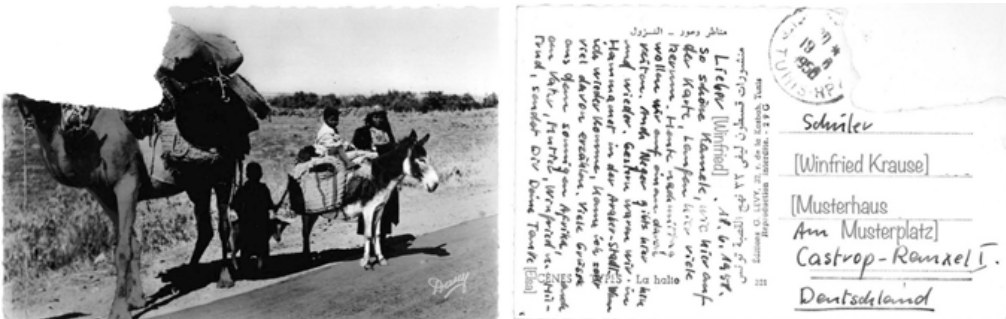 Dany
Lieber [Winfried]. 18.6.1958.
so schöne Kamele, wie hier auf
der Karte, laufen hier viele
herum. Heute nachmittag
wollen wir auf einem davon
reiten. Auch Neger gibts hier hin
und wieder. Gestern waren wir in
Hammamet in der Araber-Stadt. Wenn
ich wieder komme, kann ich sehr
viel davon erzählen. Viele Grüsse
aus dem sonnigen Afrika, auch
an Vater, Mutter, Winfried und Hil-
trud, sendet Dir Deine Tante [Elsa]
La halte
19
1958
TUNIS-RP
Schüler
[Winfried Krause]
[Musterhaus
Am Musterplatz]
Castrop-Rauxel I.
Deutschland